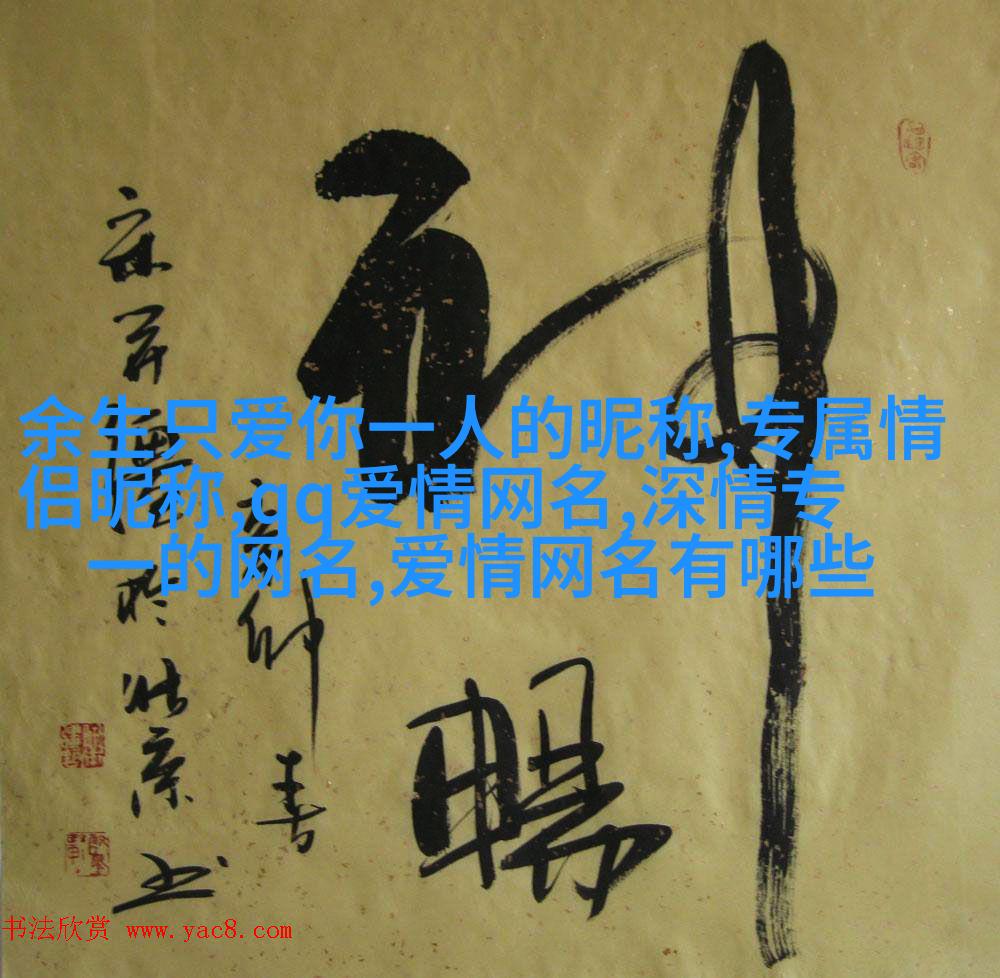 神
暢
辛卯春
宋
於北京
书
余生只爱你一人的昵称,专属情
侣昵称,qq爱情网名,深情专
一的网名,爱情网名有哪些
书法欣赏 www.yac8.com